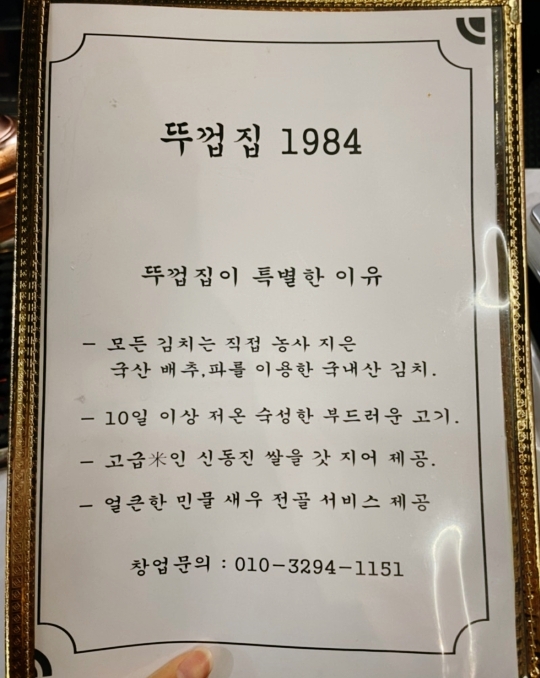 뚜껍집 1984
뚜껍집이 특별한 이유
- 모든 김치는 직접 농사 지은
국산 배추,파를 이용한 국내산 김치.
- 10일 이상 저온 숙성한 부드러운 고기.
- 고급米인 신동진 쌀을 갓 지어 제공.
- 얼큰한 민물 새우 전골 서비스 제공
창업문의 : 010-3294-1151